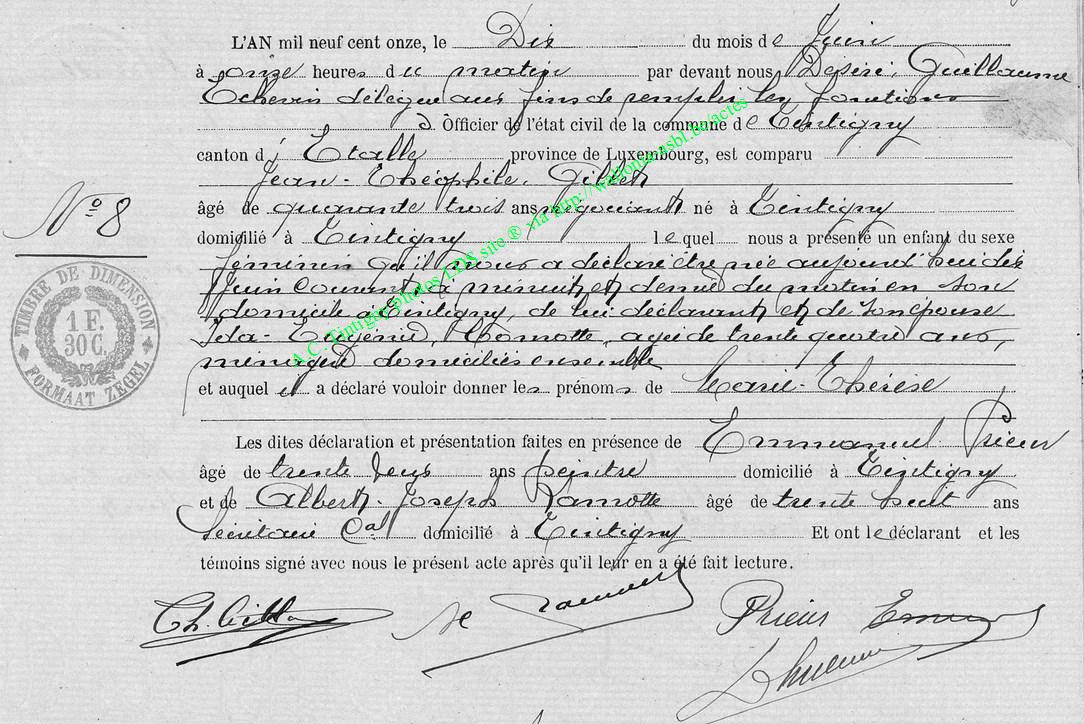 L'AN mil neuf cent onze, le Dix du mois de Juin
à onze heures du matin par devant nous Désiré, Guillaume
Echevin délégué aux fins de remplir les fonctions
d'Officier de l'état civil de la commune de Tintigny
canton d' Etalle province de Luxembourg, est comparu
Jean-Théophile, Gillet
âgé de quarante trois ans négociant né à Tintigny
N° 8
domicilié à Tintigny lequel nous a présenté un enfant du sexe
féminin qu'il nous a déclaré être née aujourd'hui dix
Juin courant, à minuit et demie du matin en son
domicile à Tintigny, de lui déclarant et de son épouse
Ida-Eugénie, Lamotte, agée de trente quatre ans,
ménagère domiciliés ensemble
et auquel il a déclaré vouloir donner les prénoms de Marie-Thérèse
TIMBRE DE DIMENSION
1 F.
30 C.
FORMAAT ZEGEL
Les dites déclaration et présentation faites en présence de Emmanuel Prieur
âgé de trente deux ans peintre domicilié à Tintigny
et de Albert-Joseph Lamotte âgé de trente huit ans
Secrétaire Cal domicilié à Tintigny Et ont le déclarant et les
témoins signé avec nous le présent acte après qu'il leur en a été fait lecture.
Th. Gillet
Prieur Emm
A.C. Tintigny photos LDS site ® via http://wallonia-asbl.be/actes